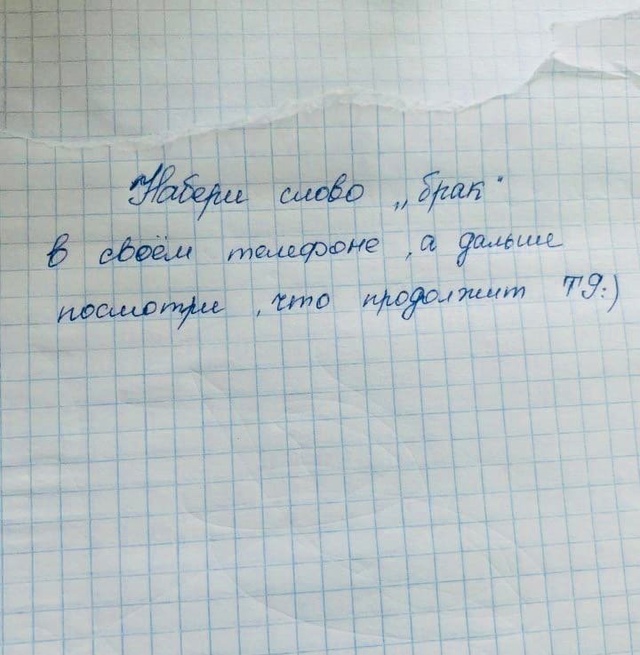 Набери слово „брак"
в своём телефоне, а дальше
посмотри, что продолжит Т9:)